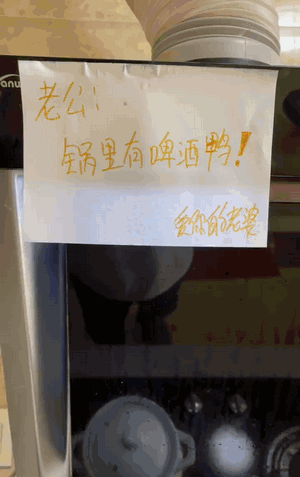 老公:
锅里有啤酒鸭!
爱你的老婆
anu